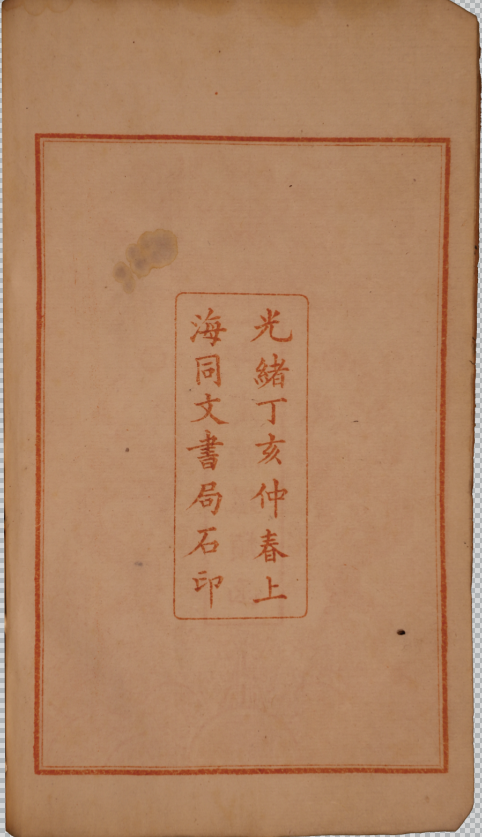 光緒丁亥仲春上
海同文書局石印